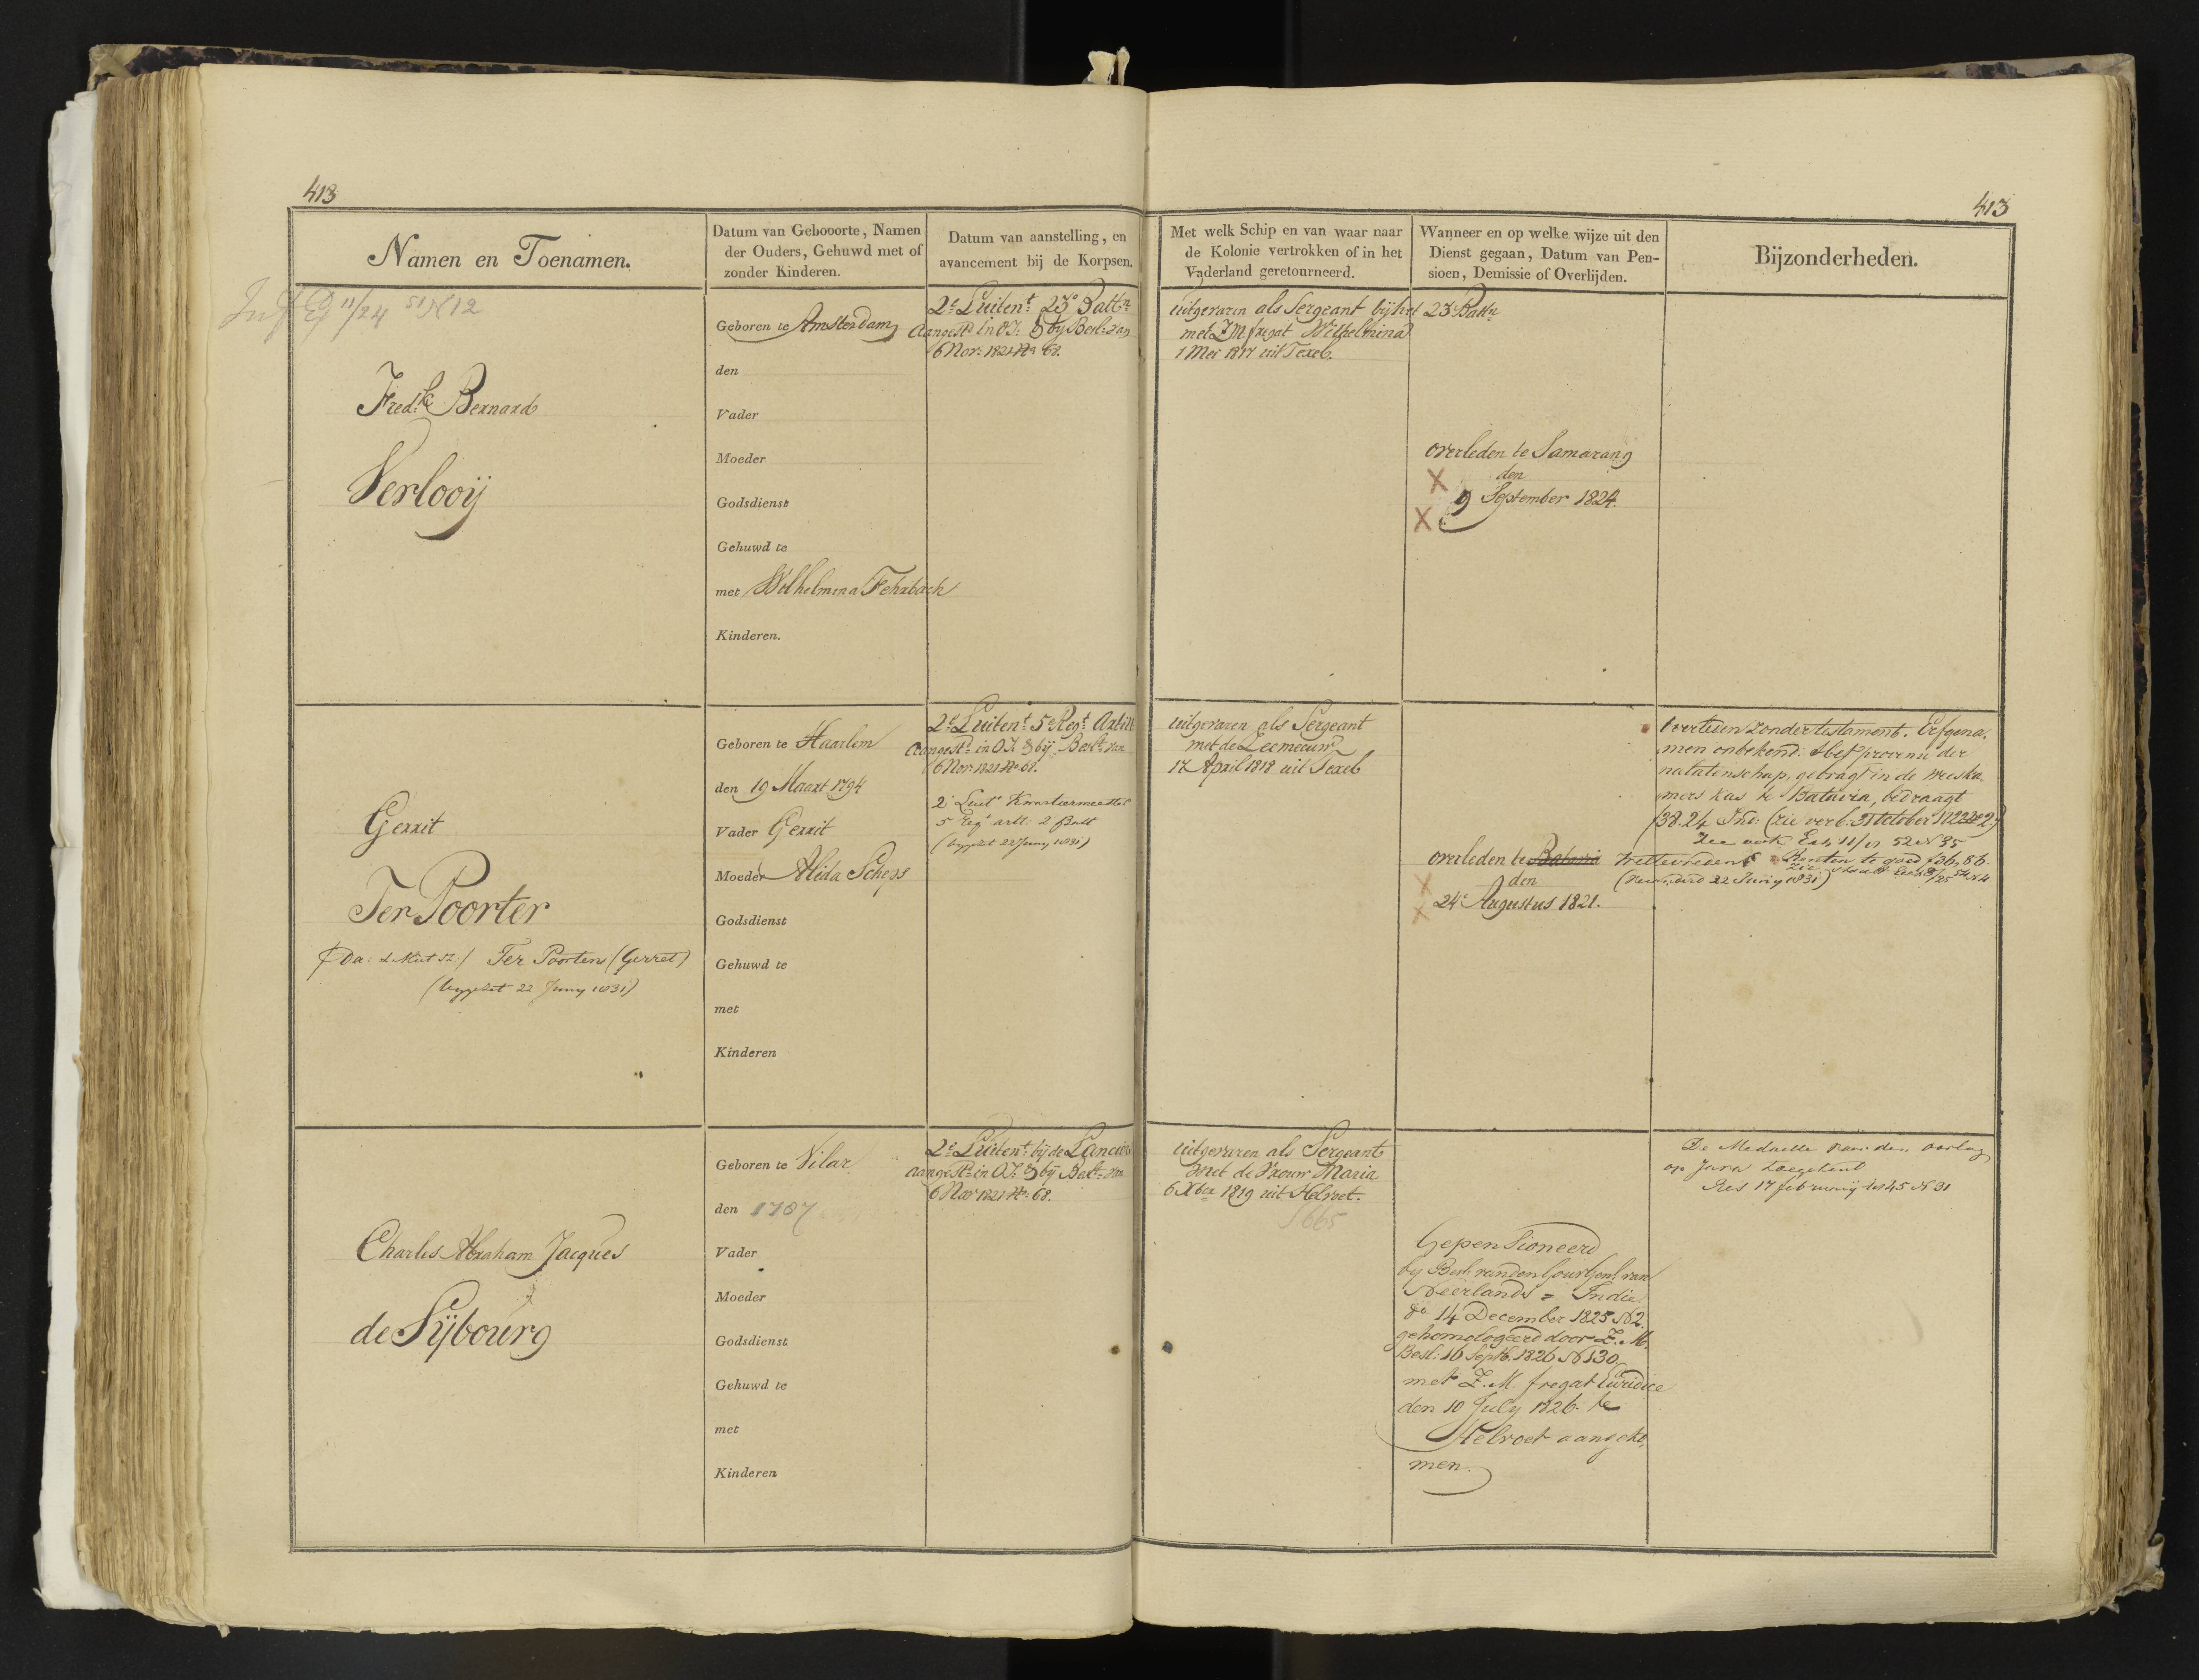 413
413
Namen en Toenamen.
Datum van Gebooorte, Namen
der Ouders, Gehuwd met of
zonder Kinderen.
Datum van aanstelling, en
avancement bij de Korpsen.
Met welk Schip en van waar naar
de Kolonie vertrokken of in het
Vaderland geretourneerd.
Wanneer en op welke wijze uit den
Dienst gegaan, Datum van Pen-
sioen, Demissie of Overlijden.
Bijzonderheden.
11/24 51 N 12
Fredk Bernard
Verlooij
Geboren te Amsterdam
den
Vader
Moeder
Godsdienst
Gehuwd te
met Wilhelmina Fehrbach
Kinderen.
2e Luitent 23e Battn
Aangestd in O.I. bij Besl: van
6 Nov: 1821 No 68.
uitgevaren als Sergeant bij het 23 Battn
met Z M fregat Wilhelmina
1 Mei 1817 uit Texel.
overleden te Samarang
den
9 September 1824.
Gerrit
Ter Poorter
Ter Poorten (Gerret)
(bygezet 22 Juny 1831)
Geboren te Haarlem
den 19 Maart 1794
Vader Gerrit
Moeder Alida Scheps
Godsdienst
Gehuwd te
met
Kinderen
2e Luitent 5e Regt Artill
Aangestd in O.I. bij Beslt van
6 Nov: 1821 No 68.
2e Luit Kwartiermeester
5 Reg artl: 2 Batt
(bygezet 22 Juny 1831)
uitgevaren als Sergeant
met de Zeemeeuw
17 April 1818 uit Texel
overleden te Batavia Weltevreden
den (22 Juny 1831)
24e Augustus 1821.
Overleden zonder testament. Erfgena-
men onbekend. Het provenu der
nalatenschap, gebragt in de weeska
mers kas te Batavia, bedraagt
f 38.24 Ind: (zie verb. October 1822 No 2)
Zie ook Exh 11/ 52 N 35
Renten te goed f 36,66.
Charles Abraham Jacques
de Sijbourg
Geboren te Vilar
den 1787
Vader
Moeder
Godsdienst
Gehuwd te
met
Kinderen
2e Luitent bij de Lanciers
aangestd in O.I. bij Beslt van
6 Nov 1821 No 68.
uitgevaren als Sergeant
met de Vrouw Maria
6 Xber 1819 uit Helvoet.
1665
Gepensioneerd
by Besl. van den Gouv Genl van
Neerlands = Indie
14 December 1825 N 2.
gehomologeerd door Z. M.
Besl: 16 Septb. 1826 N 130
met Z. M. fregat Euridice
den 10 July 1826 te
Helvoet aangeko,
men.
De Medaille van den oorlog
op Java toegekend
Res 17 february 1845 N 31